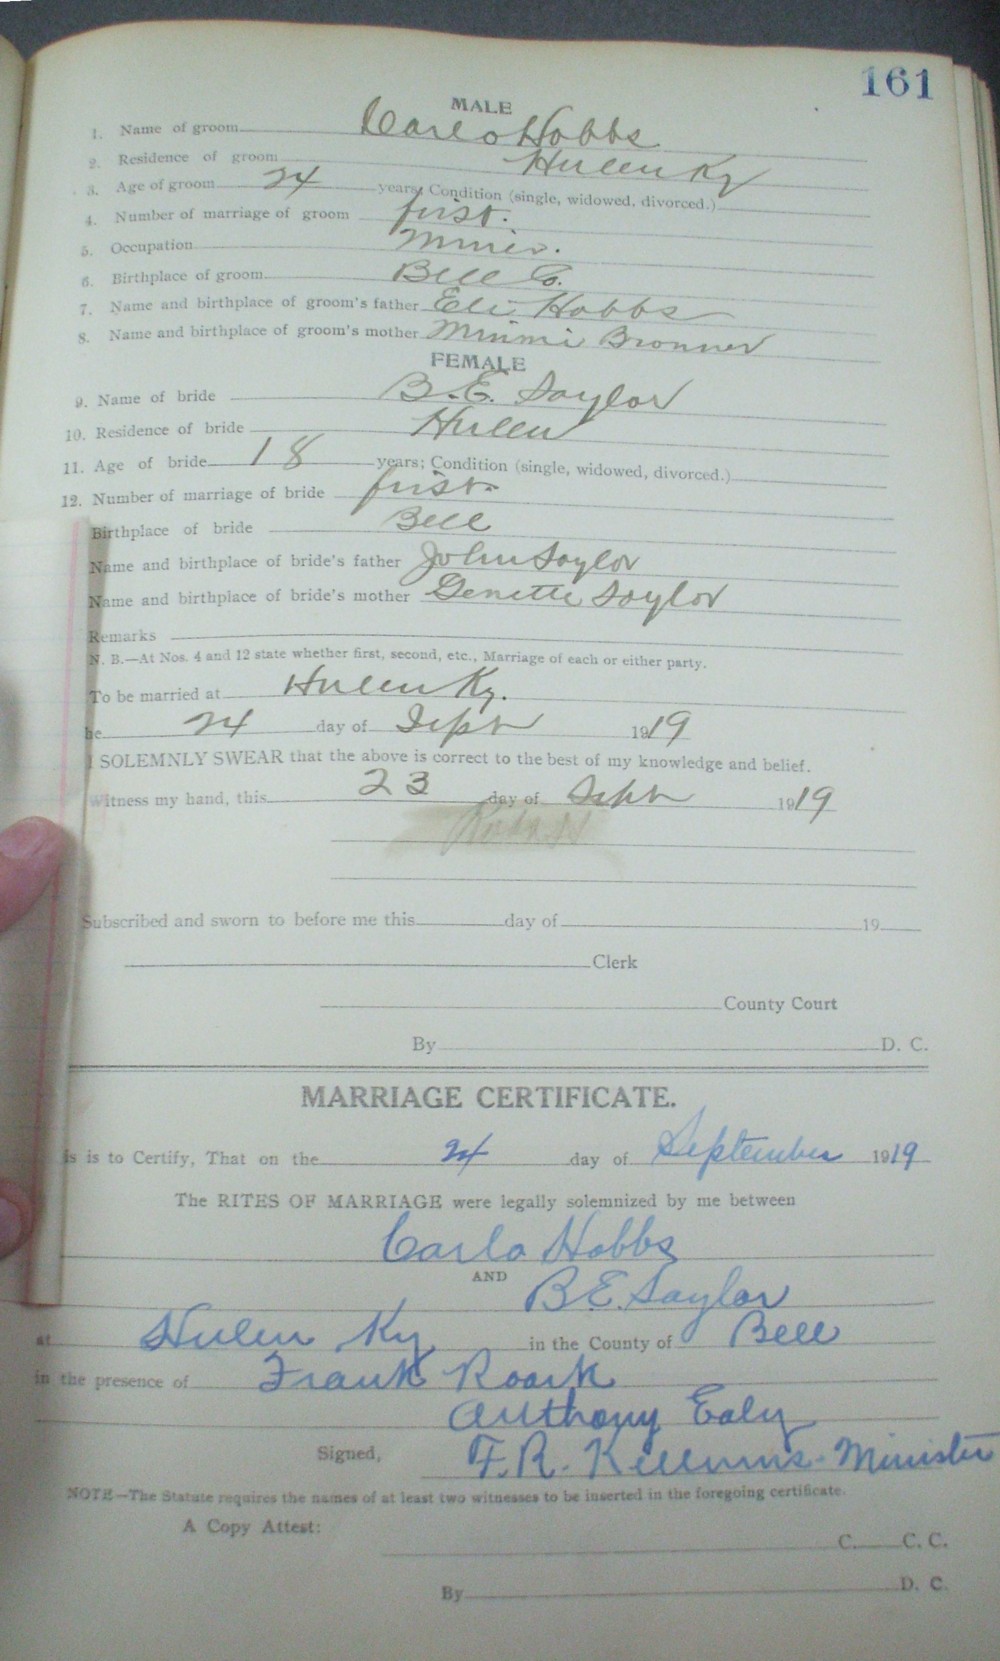 161
MALE
1. Name of groom Carlo Hobbs
2. Residence of groom Hulen Ky
3. Age of groom 24 years; Condition (single, widowed, divorced.)
4. Number of marriage of groom first.
5. Occupation Miner.
6. Birthplace of groom Bell Co.
7. Name and birthplace of groom's father Eli Hobbs
8. Name and birthplace of groom's mother Minni Bronner
FEMALE
9. Name of bride B.E. Saylor
10. Residence of bride Hulen
11. Age of bride 18 years; Condition (single, widowed, divorced.)
12. Number of marriage of bride first.
Birthplace of bride Bell
Name and birthplace of bride's father John Saylor
Name and birthplace of bride's mother Genette Saylor
Remarks
N. B.—At Nos. 4 and 12 state whether first, second, etc., Marriage of each or either party.
To be married at Hulen Ky.
he 24 day of Sept 1919
I SOLEMNLY SWEAR that the above is correct to the best of my knowledge and belief.
Witness my hand, this 23 day of Sept 1919
Subscribed and sworn to before me this day of 19
Clerk
County Court
By D. C.
MARRIAGE CERTIFICATE.
is is to Certify, That on the 24 day of September 1919
The RITES OF MARRIAGE were legally solemnized by me between
Carlo Hobbs
AND
B.E. Saylor
at Hulen Ky in the County of Bell
in the presence of Frank Roark
Anthony Ealy
Signed, F.R. Kellums - Minister
NOTE—The Statute requires the names of at least two witnesses to be inserted in the foregoing certificate.
A Copy Attest:
C. C. C.
By D. C.